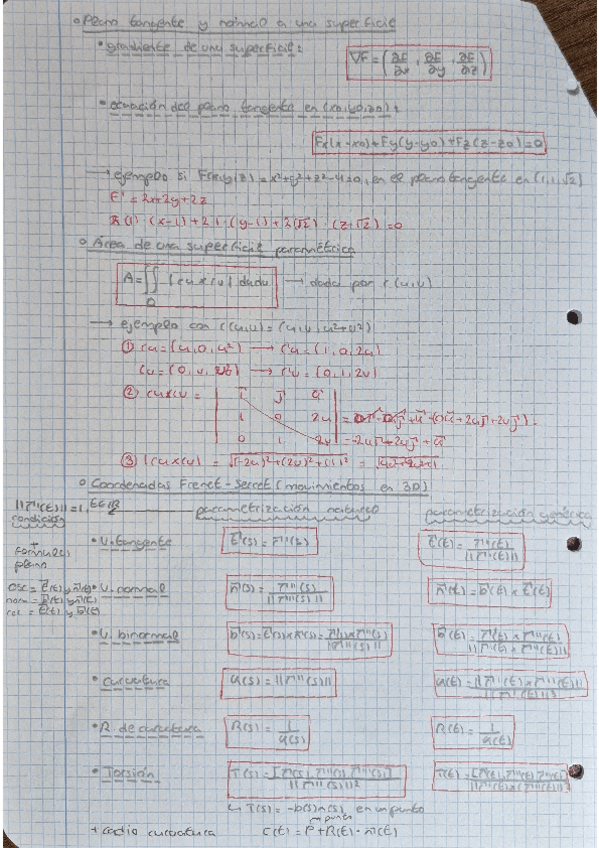 Plano tangente y normal a una superficie
gradiente de una superficie:
∇F = (∂F/∂x, ∂F/∂y, ∂F/∂z)
ecuación del plano tangente en (x0, y0, z0):
Fx(x-x0)+Fy(y-y0)+Fz(z-z0)=0
→ ejemplo si F(x,y,z)=x²+y²+z²-4=0, en el plano tangente en (1,1,√2)
F' = 2x+2y+2z
2(1)·(x-1)+2·1·(y-1)+2(√2)·(z-√2)=0
Área de una superficie paramétrica
A=∬D |ru×rv| dudv → dada por r(u,v)
→ ejemplo con r(u,v)=(u,v,u²+v²)
① ru=(u,0,u²) → r'u=(1,0,2u)
rv=(0,v,v²) → r'v=(0,1,2v)
② ru×rv =
i j k
1 0 2u
0 1 2v
= -2ui-2vj+k
③ |ru×rv| = √((-2u)²+(2v)²+(1)²) = √(4u²+4v²+1)
Coordenadas Frenet-Serret (movimientos en 3D)
||r'(t)||=1, t∈R
condición
parametrización natural
parametrización genérica
V. tangente t(s)=r'(s) t(t)=r'(t)/||r'(t)||
+
formula(s)
plano
osc = t(t) y n(t)
norm = b(t) y n(t)
rec = t(t) y b(t)
V. normal n(s)=r''(s)/||r''(s)|| n(t)=b(t)×t(t)
V. binormal b(s)=t(s)×n(s)=r'(s)×r''(s)/||r''(s)|| b(t)=r'(t)×r''(t)/||r'(t)×r''(t)||
curvatura κ(s)=||r''(s)|| κ(t)=||r'(t)×r''(t)||/||r'(t)||³
R. de curvatura R(s)=1/κ(s) R(t)=1/κ(t)
Torsión T(s)=[r'(s),r''(s),r'''(s)]/||r''(s)||² T(t)=[r'(t),r''(t),r'''(t)]
↳ T(s)=-b'(s)n(s), en un punto
+ radio curvatura C(t)=P+R(t)·n(t)
punto